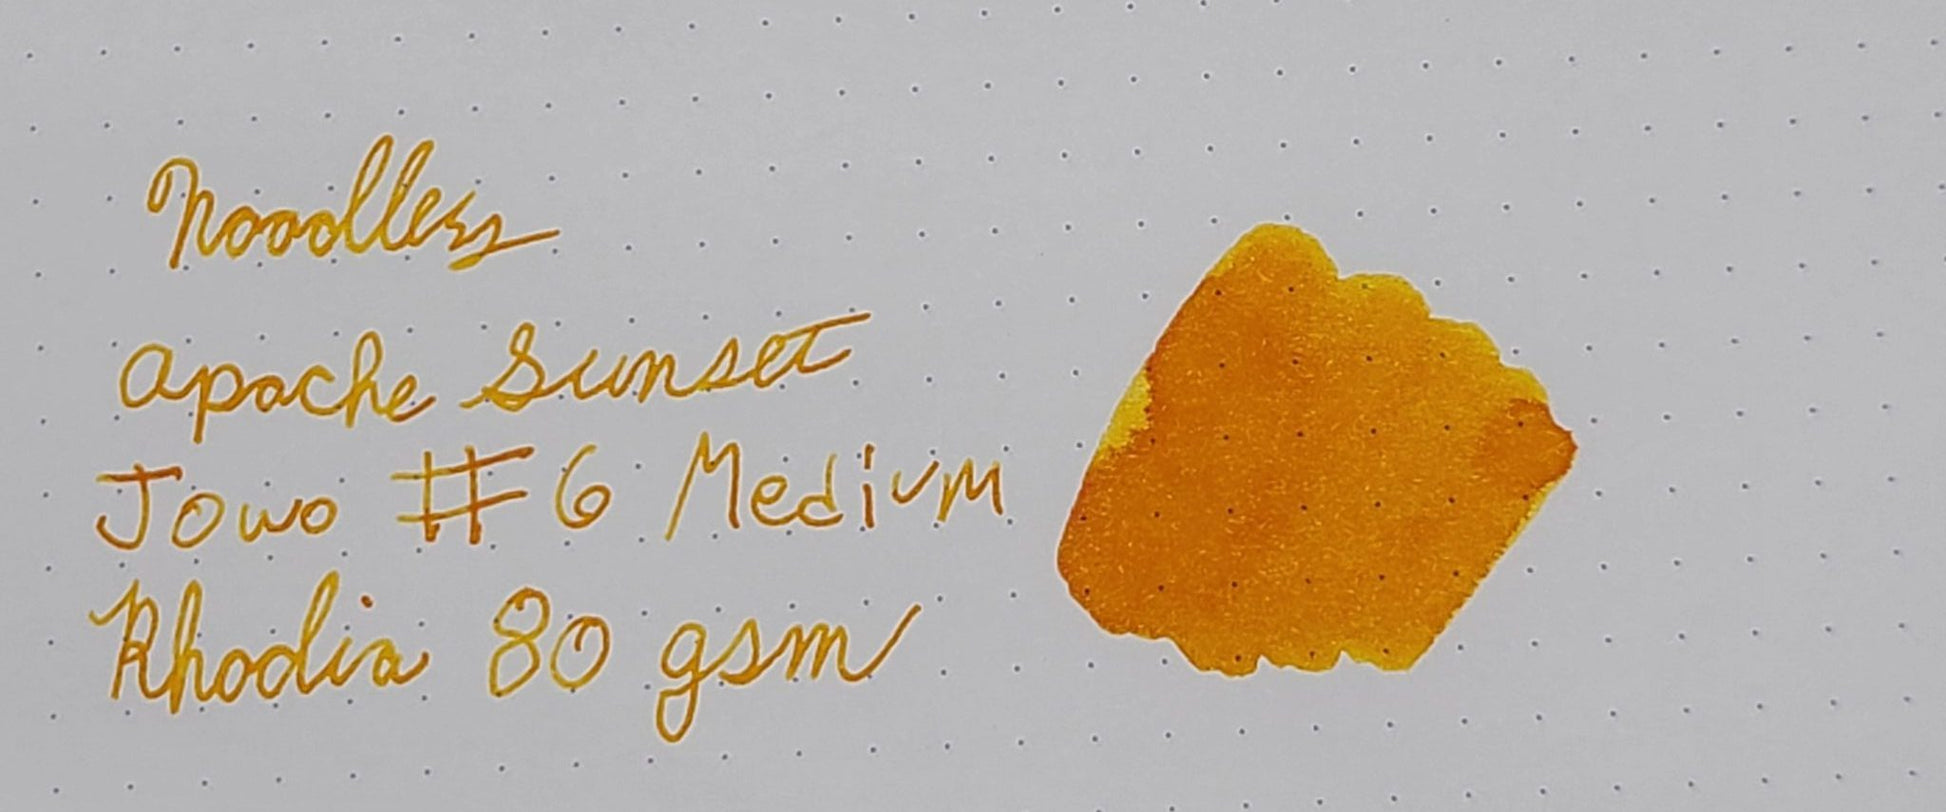 Noodlers
Apache Sunset
Jowo #6 Medium
Rhodia 80 gsm